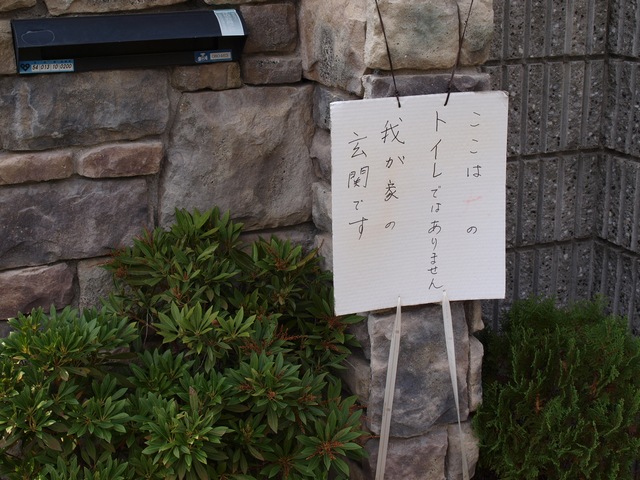 ここは の
トイレではありません
我が家の
玄関です